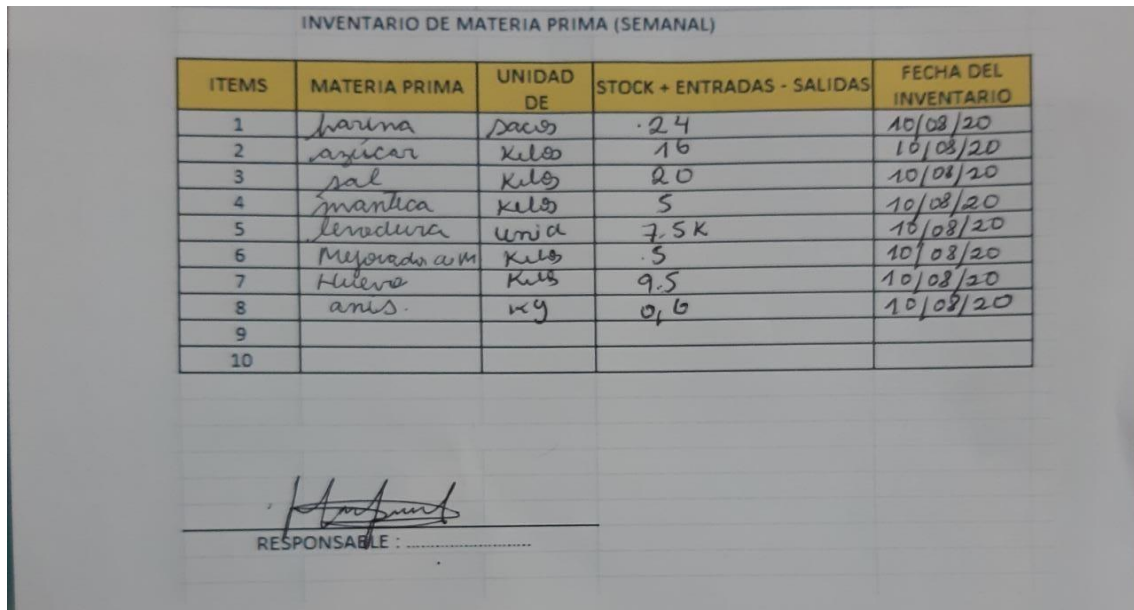 INVENTARIO DE MATERIA PRIMA (SEMANAL)
ITEMS MATERIA PRIMA UNIDAD DE STOCK + ENTRADAS - SALIDAS FECHA DEL INVENTARIO
1 harina Sacos 24 10/08/20
2 azúcar Kilos 16 10/08/20
3 sal Kilos 20 10/08/20
4 manteca Kilos 5 10/08/20
5 levadura unid 7.5 K 10/08/20
6 Mejorador Kilos .5 10/08/20
7 Huevo Kilos 9.5 10/08/20
8 anís. Kg 0,6 10/08/20
9
10
RESPONSABLE : ..............................